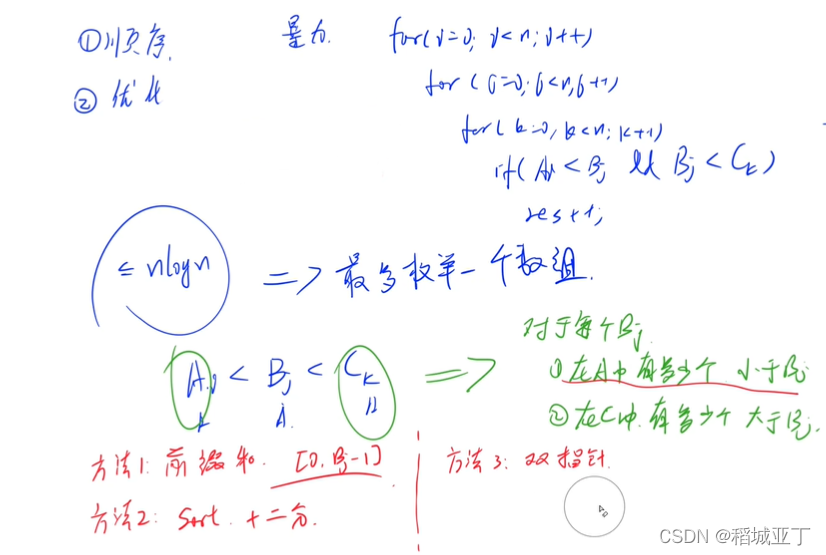 ①顺序
②优化
暴力
for(i=0; i<n; i++)
for(j=0; j<n; j++)
for(k=0, k<n; k++)
if(Ai < Bj && Bj < Ck)
res++;
≤ nlogn => 最多枚举一个数组.
Ai < Bj < Ck =>
对于每个Bj
①在A中有多少个 小于Bj
②在C中有多少个 大于Bj.
方法1: 前缀和. [0, Bj-1]
方法2: Sort + 二分.
方法3: 双指针
CSDN @稻城亚丁